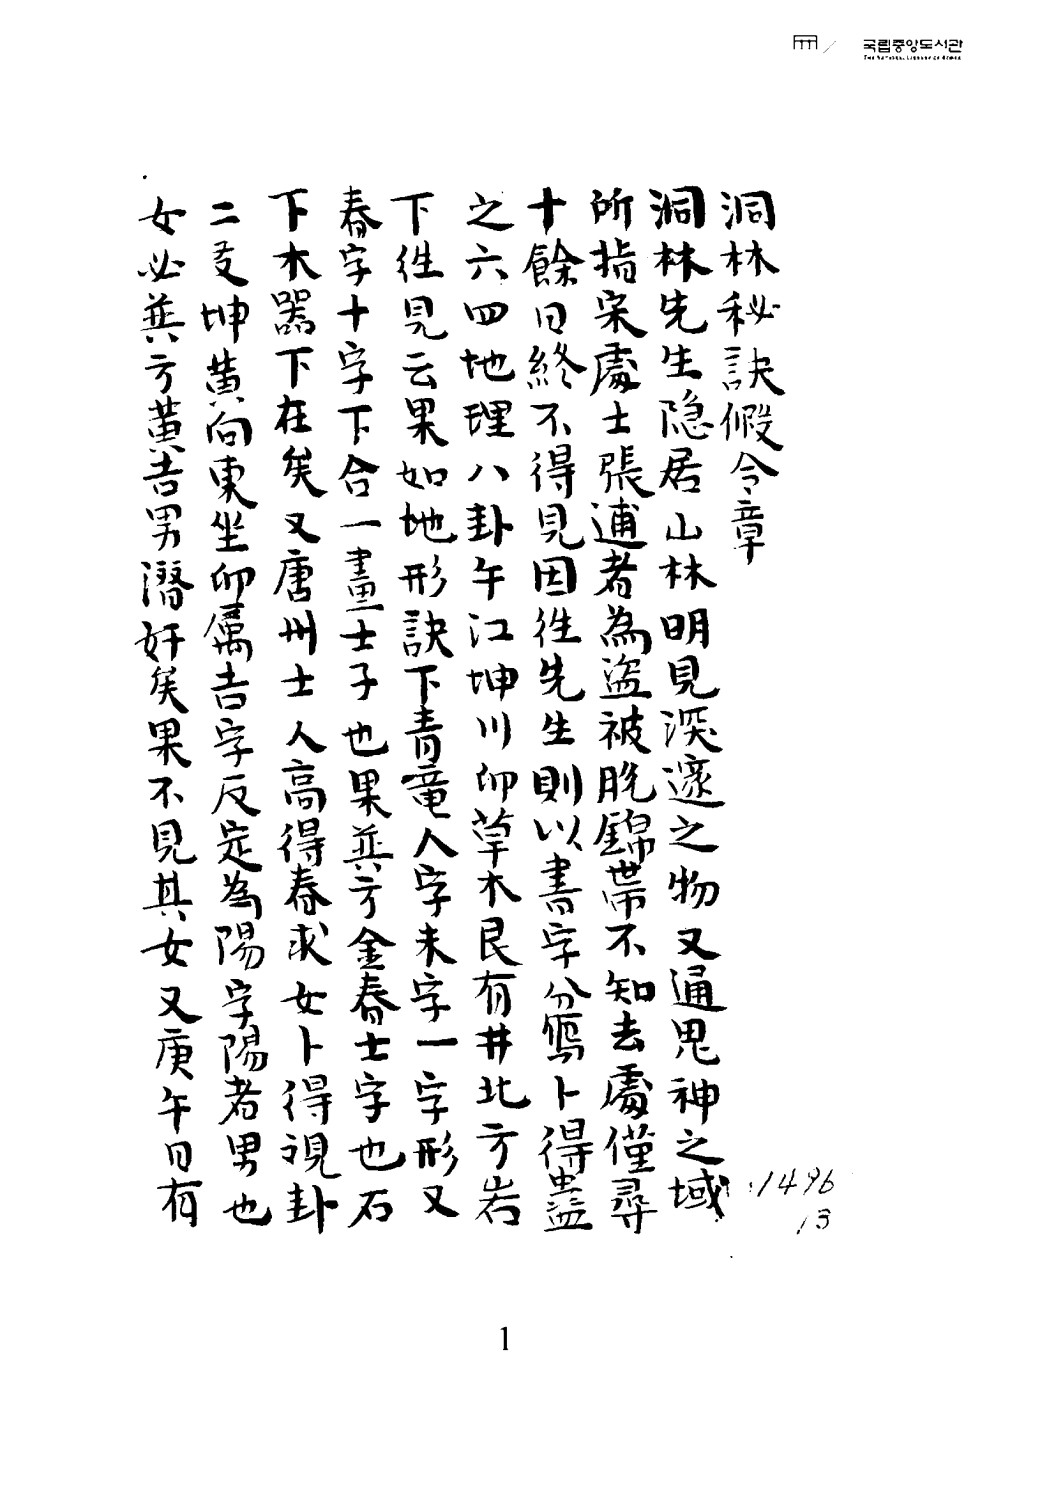 국립중앙도서관
THE NATIONAL LIBRARY OF KOREA
洞林秘訣假令章
洞林先生隐居山林明見深邃之物又通鬼神之域
所指宋處士張逋者為盜被脱錦帶不知去處僅尋
十餘日終不得見因徃先生則以書字分寫卜得蠱
之六四地理八卦午江坤川卯草木艮有井北方岩
下徃見云果如地形訣下青竜人字未字一字形又
春字十字下合一畫士子也果其方金春士字也石
下木器下在矣又唐州士人高得春求女卜得观卦
二爻坤黄向東坐卯属吉字反定為陽字陽者男也
女必其方黄吉男潛奸矣果不見其女又庚午日有
1496
13
1